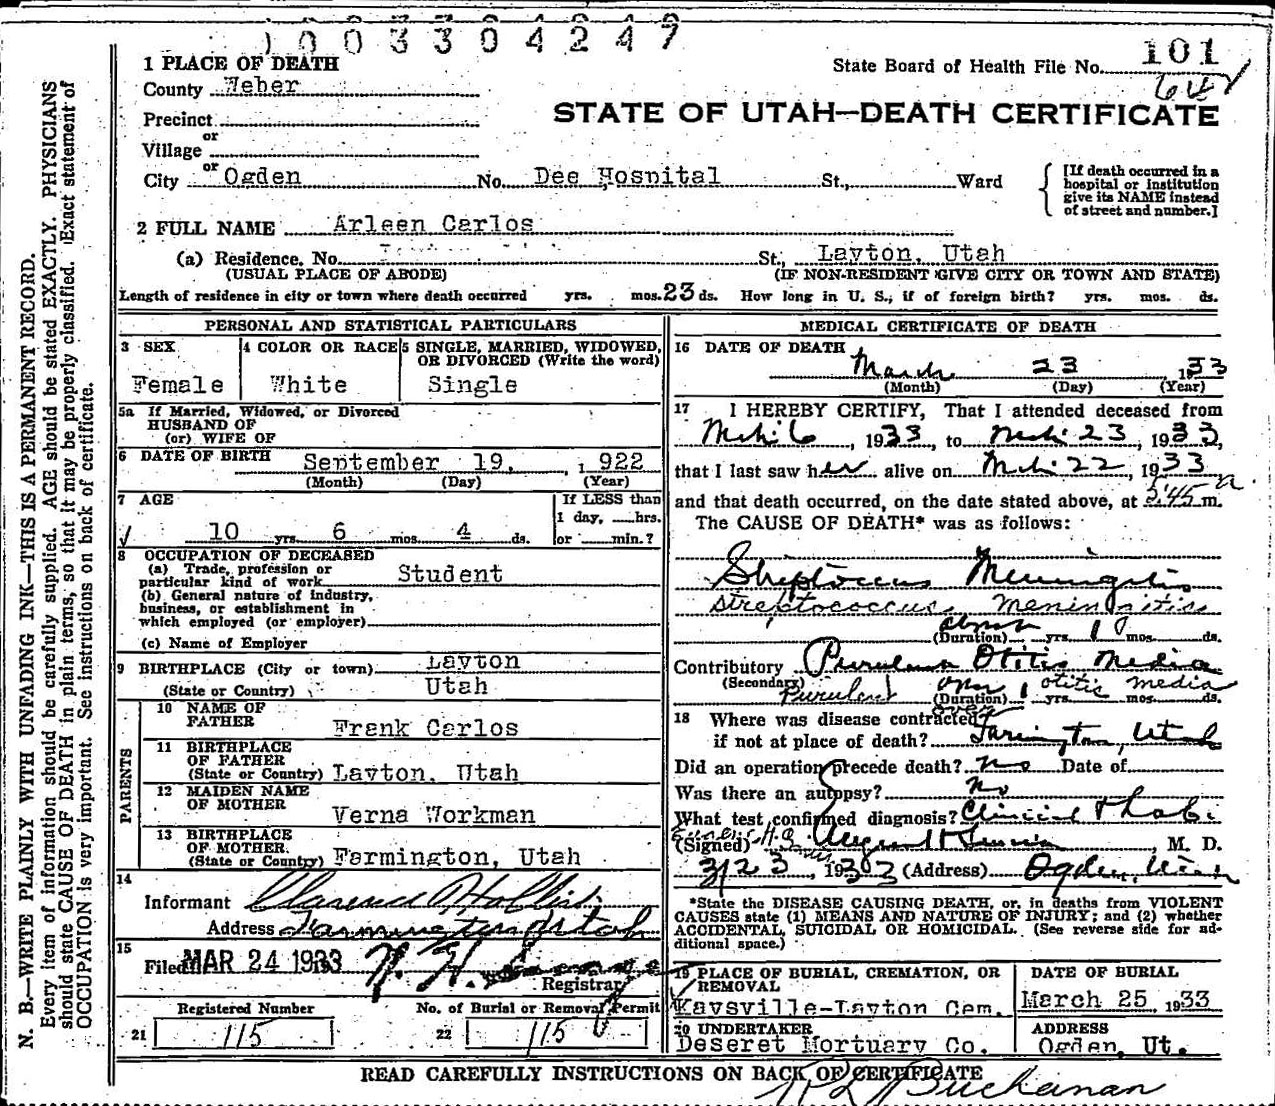 1003304247
1 PLACE OF DEATH
State Board of Health File No. 101
County Weber
64
STATE OF UTAH—DEATH CERTIFICATE
Precinct
or
Village
or
City Ogden No. Dee Hospital St., Ward
[If death occurred in a hospital or institution give its NAME instead of street and number.]
2 FULL NAME Arleen Carlos
(a) Residence, No. St., Layton, Utah
(USUAL PLACE OF ABODE) (IF NON-RESIDENT GIVE CITY OR TOWN AND STATE)
Length of residence in city or town where death occurred yrs. mos. 23 ds. How long in U. S., if of foreign birth? yrs. mos. ds.
PERSONAL AND STATISTICAL PARTICULARS
3 SEX 4 COLOR OR RACE 5 SINGLE, MARRIED, WIDOWED, OR DIVORCED (Write the word)
Female White Single
5a If Married, Widowed, or Divorced
HUSBAND OF
(or) WIFE OF
6 DATE OF BIRTH September 19, 1922
(Month) (Day) (Year)
7 AGE If LESS than
1 day, hrs.
10 yrs. 6 mos. 4 ds. or min.?
8 OCCUPATION OF DECEASED
(a) Trade, profession or
particular kind of work Student
(b) General nature of industry,
business, or establishment in
which employed (or employer)
(c) Name of Employer
9 BIRTHPLACE (City or town) Layton
(State or Country) Utah
PARENTS
10 NAME OF
FATHER Frank Carlos
11 BIRTHPLACE
OF FATHER
(State or Country) Layton, Utah
12 MAIDEN NAME
OF MOTHER Verna Workman
13 BIRTHPLACE
OF MOTHER.
(State or Country) Farmington, Utah
14
Informant Clarence Hollist
Address Farmington Utah
15
Filed MAR 24 1933
Registrar
Registered Number No. of Burial or Removal Permit
21 115 22 115
MEDICAL CERTIFICATE OF DEATH
16 DATE OF DEATH
March 23 1933
(Month) (Day) (Year)
17 I HEREBY CERTIFY, That I attended deceased from
Mch. 6, 1933, to Mch. 23, 1933,
that I last saw her alive on Mch. 22, 1933
and that death occurred, on the date stated above, at 5:45 a. m.
The CAUSE OF DEATH* was as follows:
Streptoccus Meningitis
streptococcus meningitis
about
(Duration) yrs. 1 mos. ds.
Contributory Purulent Otitis Media
(Secondary) Purulent otitis media
over (Duration) 1 yrs. mos. ds.
over
18 Where was disease contracted
if not at place of death? Farmington, Utah
Did an operation precede death? no Date of
Was there an autopsy? no
What test confirmed diagnosis? Clinical & Lab.
(Signed) M. D.
3/23, 1933 (Address) Ogden, Utah
*State the DISEASE CAUSING DEATH, or, in deaths from VIOLENT
CAUSES state (1) MEANS AND NATURE OF INJURY; and (2) whether
ACCIDENTAL, SUICIDAL OR HOMICIDAL. (See reverse side for ad-
ditional space.)
19 PLACE OF BURIAL, CREMATION, OR REMOVAL DATE OF BURIAL
Kaysville-Layton Cem. March 25, 1933
20 UNDERTAKER ADDRESS
Deseret Mortuary Co. Ogden, Ut.
READ CAREFULLY INSTRUCTIONS ON BACK OF CERTIFICATE
Buchanan
N. B.—WRITE PLAINLY WITH UNFADING INK—THIS IS A PERMANENT RECORD.
Every item of information should be carefully supplied. AGE should be stated EXACTLY. PHYSICIANS
should state CAUSE OF DEATH in plain terms, so that it may be properly classified. Exact statement of
OCCUPATION is very important. See instructions on back of certificate.